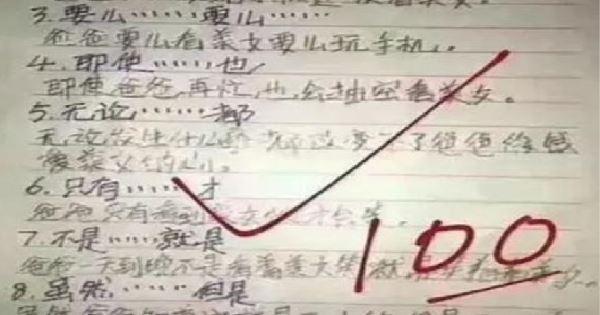 看美女。
3.要么……要么……
爸爸要么看美女要么玩手机。
4.即使……也
即使爸爸再忙,也会抽空看美女。
5.无论……都
无论发生什么事都改变不了爸爸
美女
6.只有……才
爸爸只有看到美女 才会笑。
7.不是……就是
爸爸一天到晚不是看着美女笑就是
8.虽然……但是
100